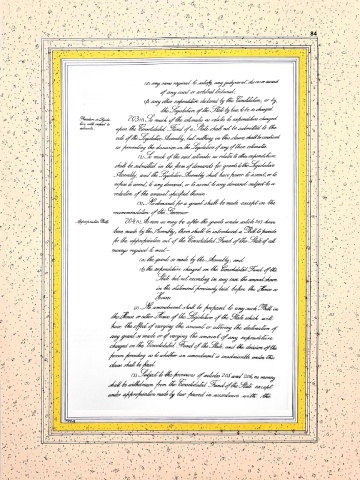 84
(e) any sums required to satisfy any judgment, decree or award
of any court or arbitral tribunal;
(f) any other expenditure declared by this Constitution, or by
the Legislature of the State by law, to be so charged.
Procedure in Legislature with respect to estimates.
203. (1) So much of the estimates as relates to expenditure charged
upon the Consolidated Fund of a State shall not be submitted to the
vote of the Legislative Assembly, but nothing in this clause shall be construed
as preventing the discussion in the Legislature of any of those estimates.
(2) So much of the said estimates as relates to other expenditure
shall be submitted in the form of demands for grants to the Legislative
Assembly, and the Legislative Assembly shall have power to assent, or to
refuse to assent, to any demand, or to assent to any demand subject to a
reduction of the amount specified therein.
(3) No demand for a grant shall be made except on the
recommendation of the Governor.
Appropriation Bills.
204. (1) As soon as may be after the grants under article 203 have
been made by the Assembly, there shall be introduced a Bill to provide
for the appropriation out of the Consolidated Fund of the State of all
moneys required to meet—
(a) the grants so made by the Assembly; and
(b) the expenditure charged on the Consolidated Fund of the
State but not exceeding in any case the amount shown
in the statement previously laid before the House or
Houses.
(2) No amendment shall be proposed to any such Bill in
the House or either House of the Legislature of the State which will
have the effect of varying the amount or altering the destination of
any grant so made or of varying the amount of any expenditure
charged on the Consolidated Fund of the State, and the decision of the
person presiding as to whether an amendment is inadmissible under this
clause shall be final.
(3) Subject to the provisions of articles 205 and 206, no money
shall be withdrawn from the Consolidated Fund of the State except
under appropriation made by law passed in accordance with the